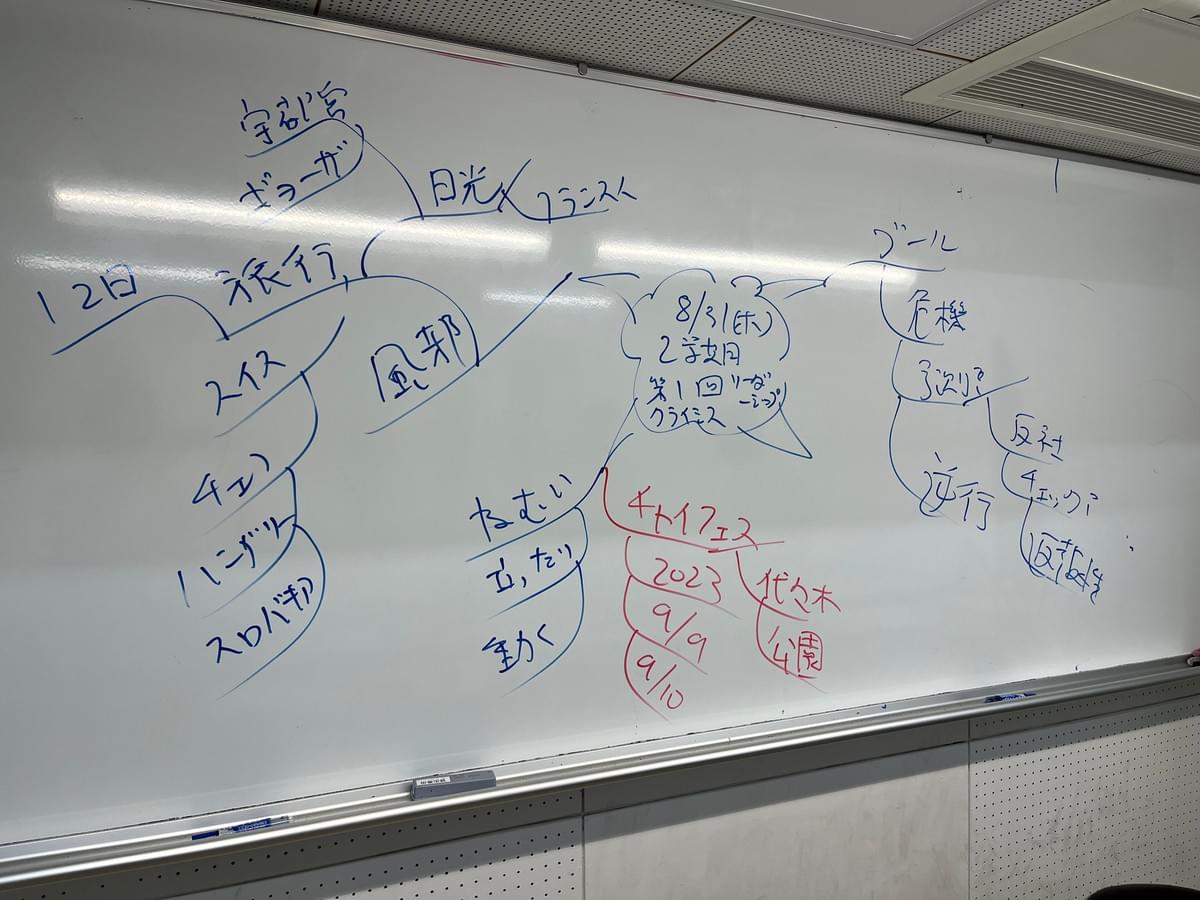 宇都宮
ギョーザ
日光
フランス人
旅行
12日
風邪
スイス
チェコ
ハンガリー
スロバキア
8/31(木)
2学期
第1回 リーダーシップ
クライミス
プール
危機
逆行
反社
チェック
ねむい
立ったり
動く
チャイフェス
2023
9/9
9/10
代々木
公園